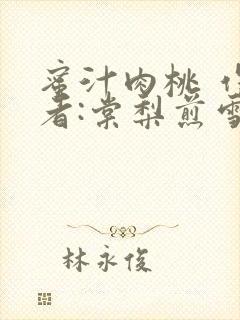 蜜汁肉桃 
者:棠梨煎雪
林永俊